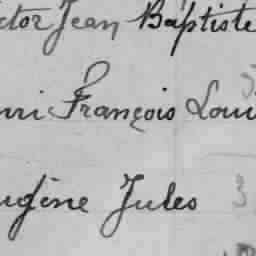 ctor Jean Baptiste
nri François Loui
ugène Jules 3